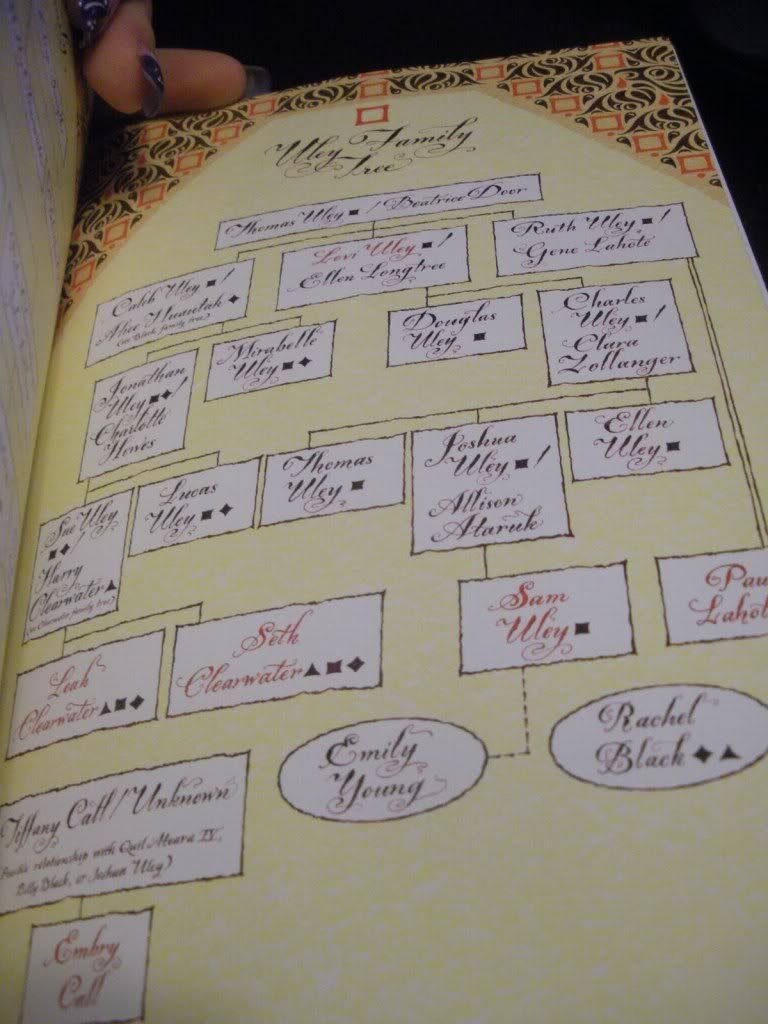 Uley Family
Tree
Thomas Uley ■ / Beatrice Door
Caleb Uley ■ /
Alice Hunutak ◆
(see Black family tree)
Levi Uley ■ /
Ellen Longtree
Ruth Uley ■ /
Gene Lahote
Jonathan
Uley ■ ◆ /
Charlotte
Hewes
Mirabelle
Uley ■ ◆
Douglas
Uley ■
Charles
Uley ■ /
Clara
Zollanger
Sue Uley
■ ◆ /
Harry
Clearwater ▲
(see Clearwater family tree)
Lucas
Uley ■ ◆
Thomas
Uley ■
Joshua
Uley ■ /
Allison
Ataruk
Ellen
Uley ■
Leah
Clearwater ▲ ■ ◆
Seth
Clearwater ▲ ■ ◆
Sam
Uley ■
Pau
Lahot
Emily
Young
Rachel
Black ◆ ▲
Tiffany Call / Unknown
relationship with Quil Ateara IV,
Billy Black, or Joshua Uley)
Embry
Call